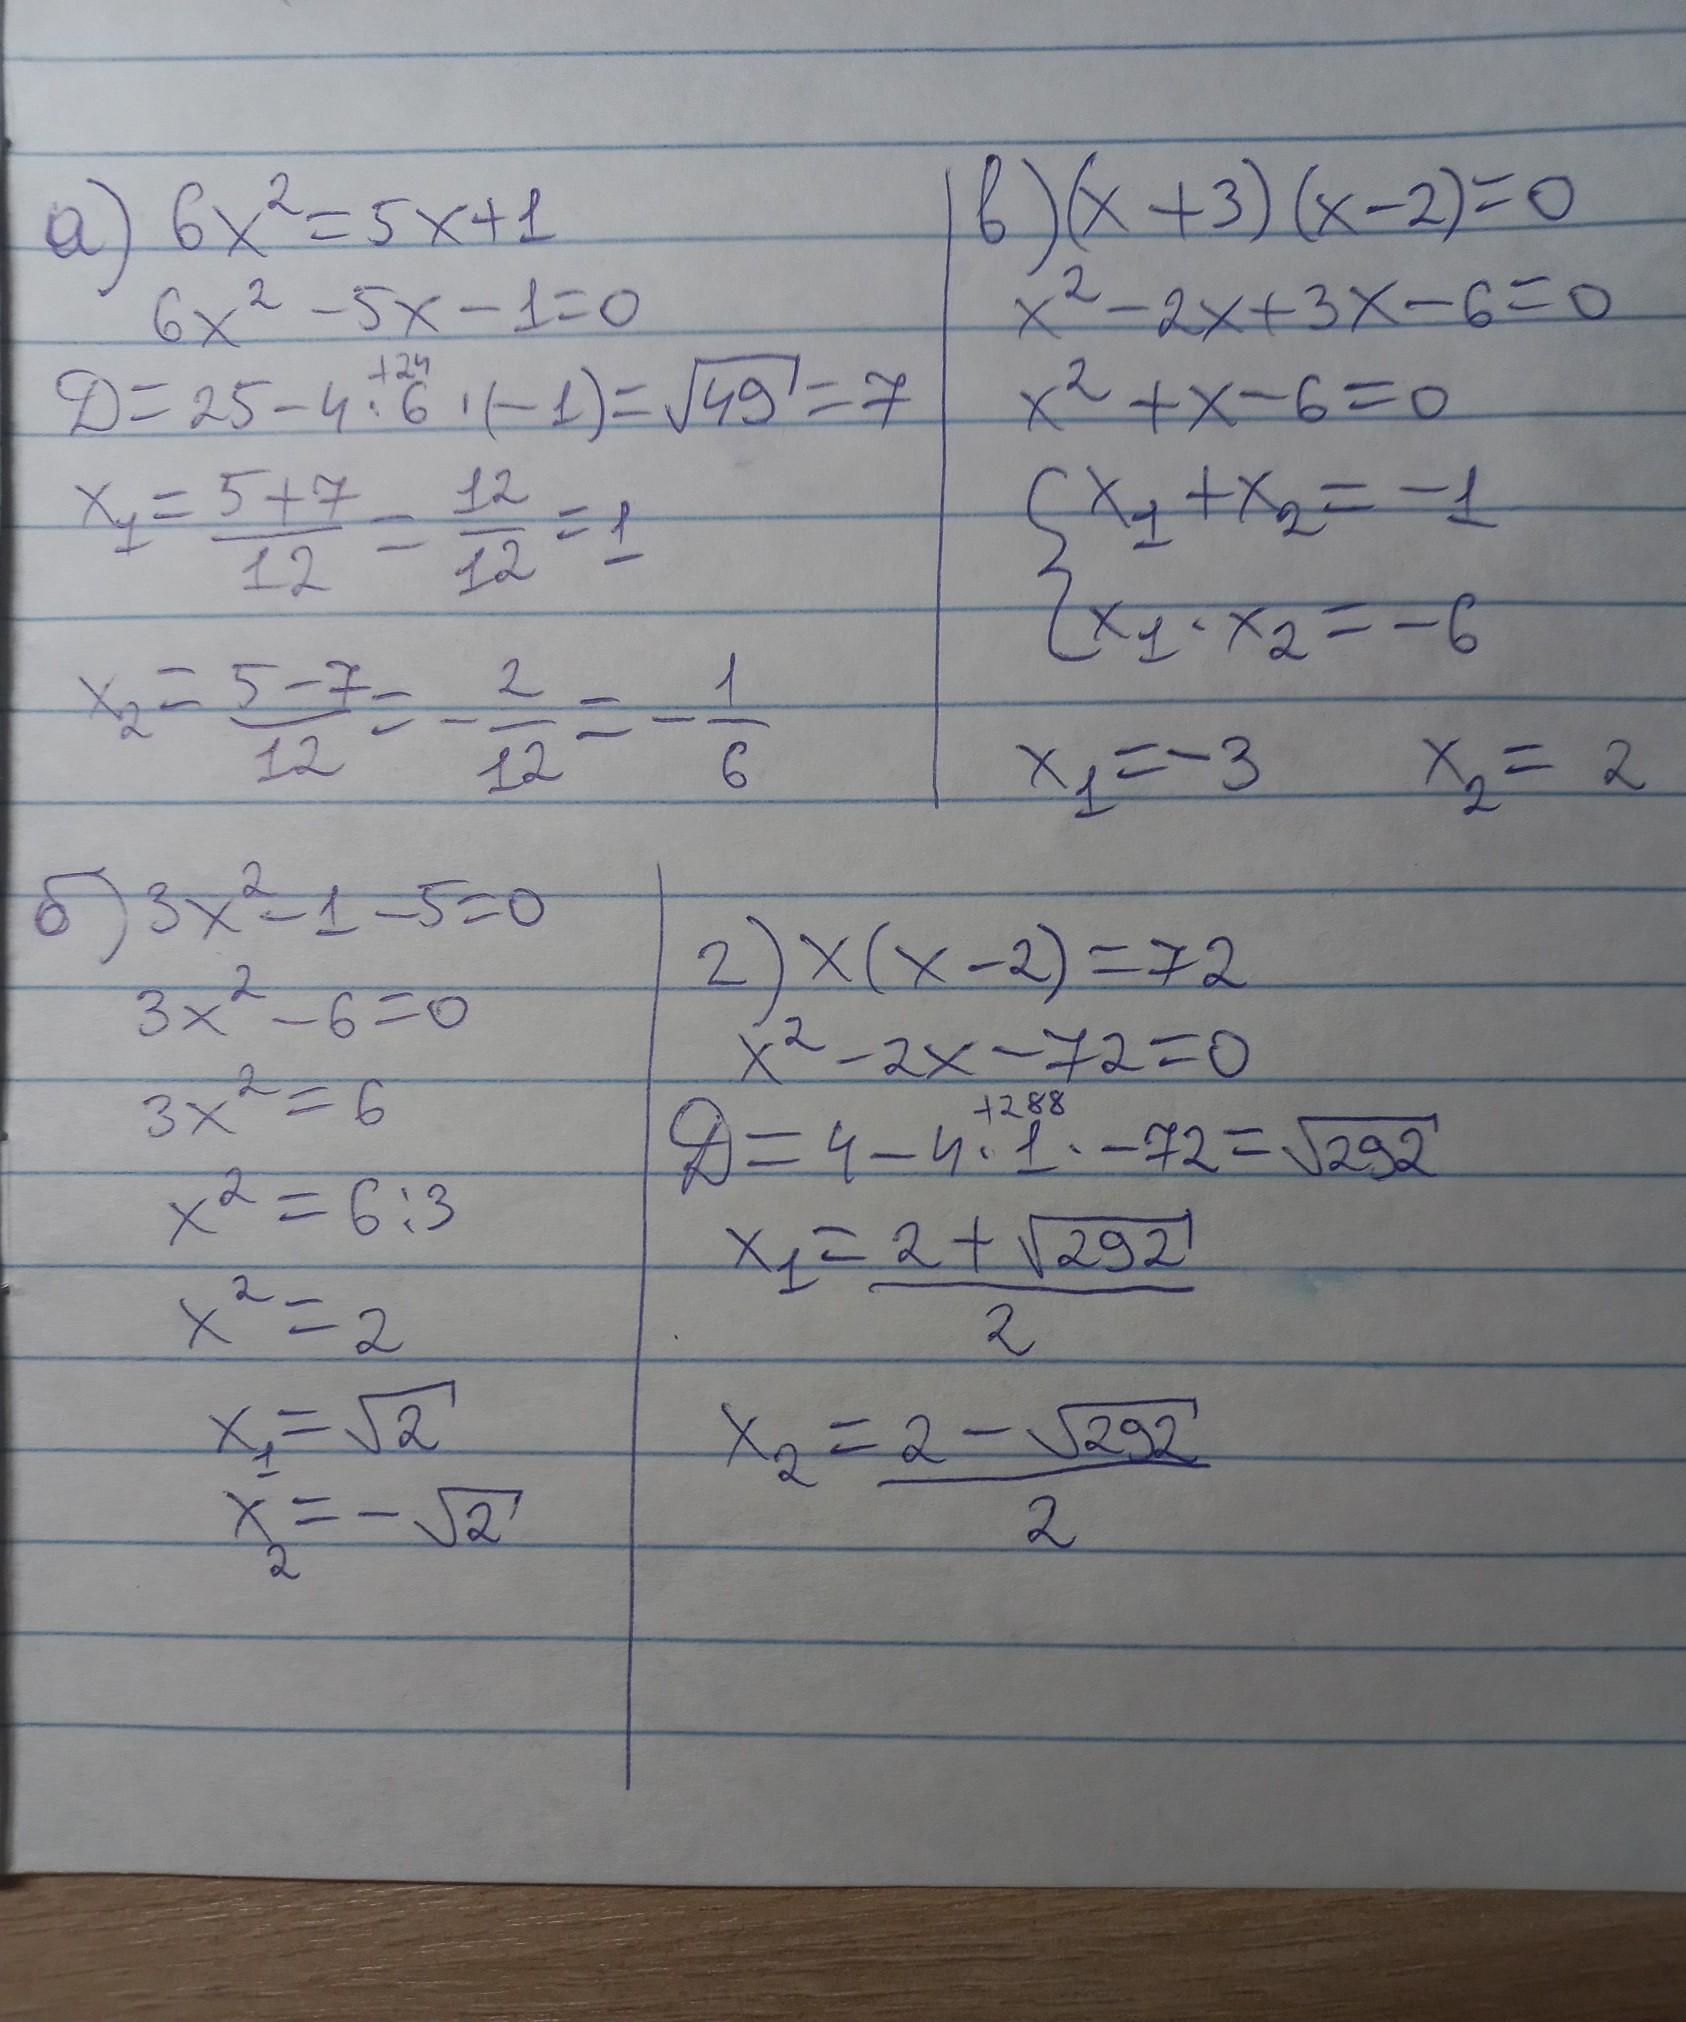 а) 6x² = 5x+1
6x² - 5x - 1 = 0
+24
Д = 25 - 4 · 6 · (-1) = √49 = 7
x₁ = (5+7)/12 = 12/12 = 1
x₂ = (5-7)/12 = - 2/12 = - 1/6
в) (x + 3) (x - 2) = 0
x² - 2x + 3x - 6 = 0
x² + x - 6 = 0
{ x₁ + x₂ = -1
x₁ · x₂ = -6
x₁ = -3 x₂ = 2
б) 3x² - 1 - 5 = 0
3x² - 6 = 0
3x² = 6
x² = 6 : 3
x² = 2
x₁ = √2
x₂ = - √2
г) x (x - 2) = 72
x² - 2x - 72 = 0
+288
Д = 4 - 4 · 1 · -72 = √292
x₁ = (2 + √292)/2
x₂ = (2 - √292)/2